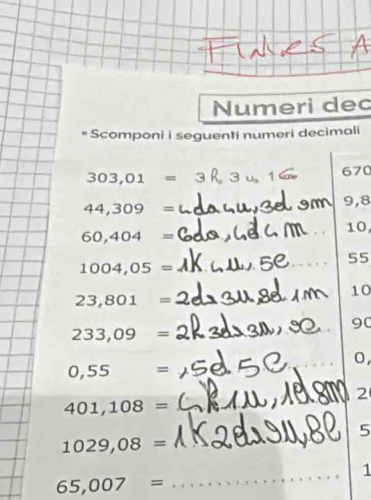 FINIRES A
Numeri dec
Scomponi i seguenti numeri decimali
303,01 = 3h, 3u, 1c
670
44,309 = 4da 4u, 3d 9m
9,8
60,404 = 6da, 4d 4m
10,
1004,05 = 1K 4u, 5c
55
23,801 = 2da 3u 8d 1m
10
233,09 = 2h 3da 3u, 9c
90
0,55 = , 5d 5c
0,
401,108 = 4h 1u, 1d 8m
2
1029,08 = 1K 2da 9u, 8c
5
65,007 = ....................
1